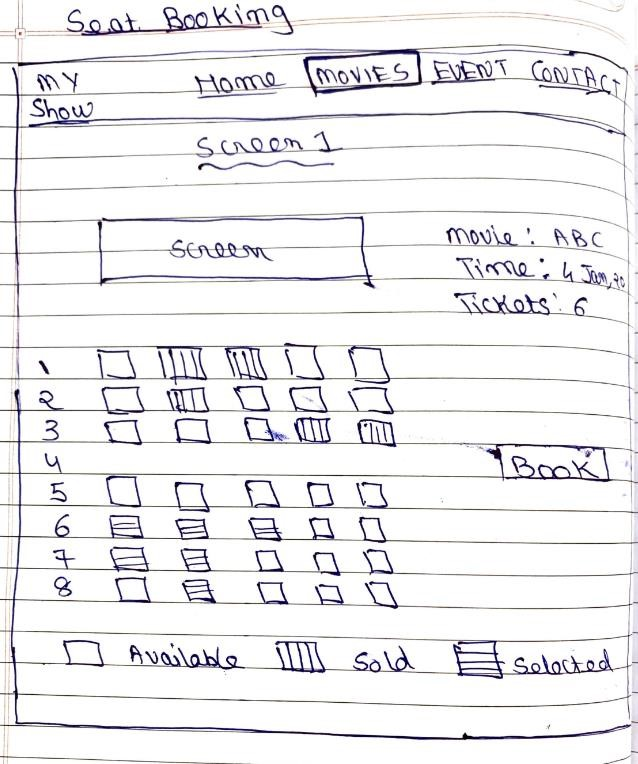 Seat Booking
MY Home MOVIES EVENT CONTACT
Show
Screen 1
Screen
Movie: ABC
Time: 4 Jan, 20
Tickets: 6
1
2
3
4
5
6
7
8
BOOK
Available Sold Selected